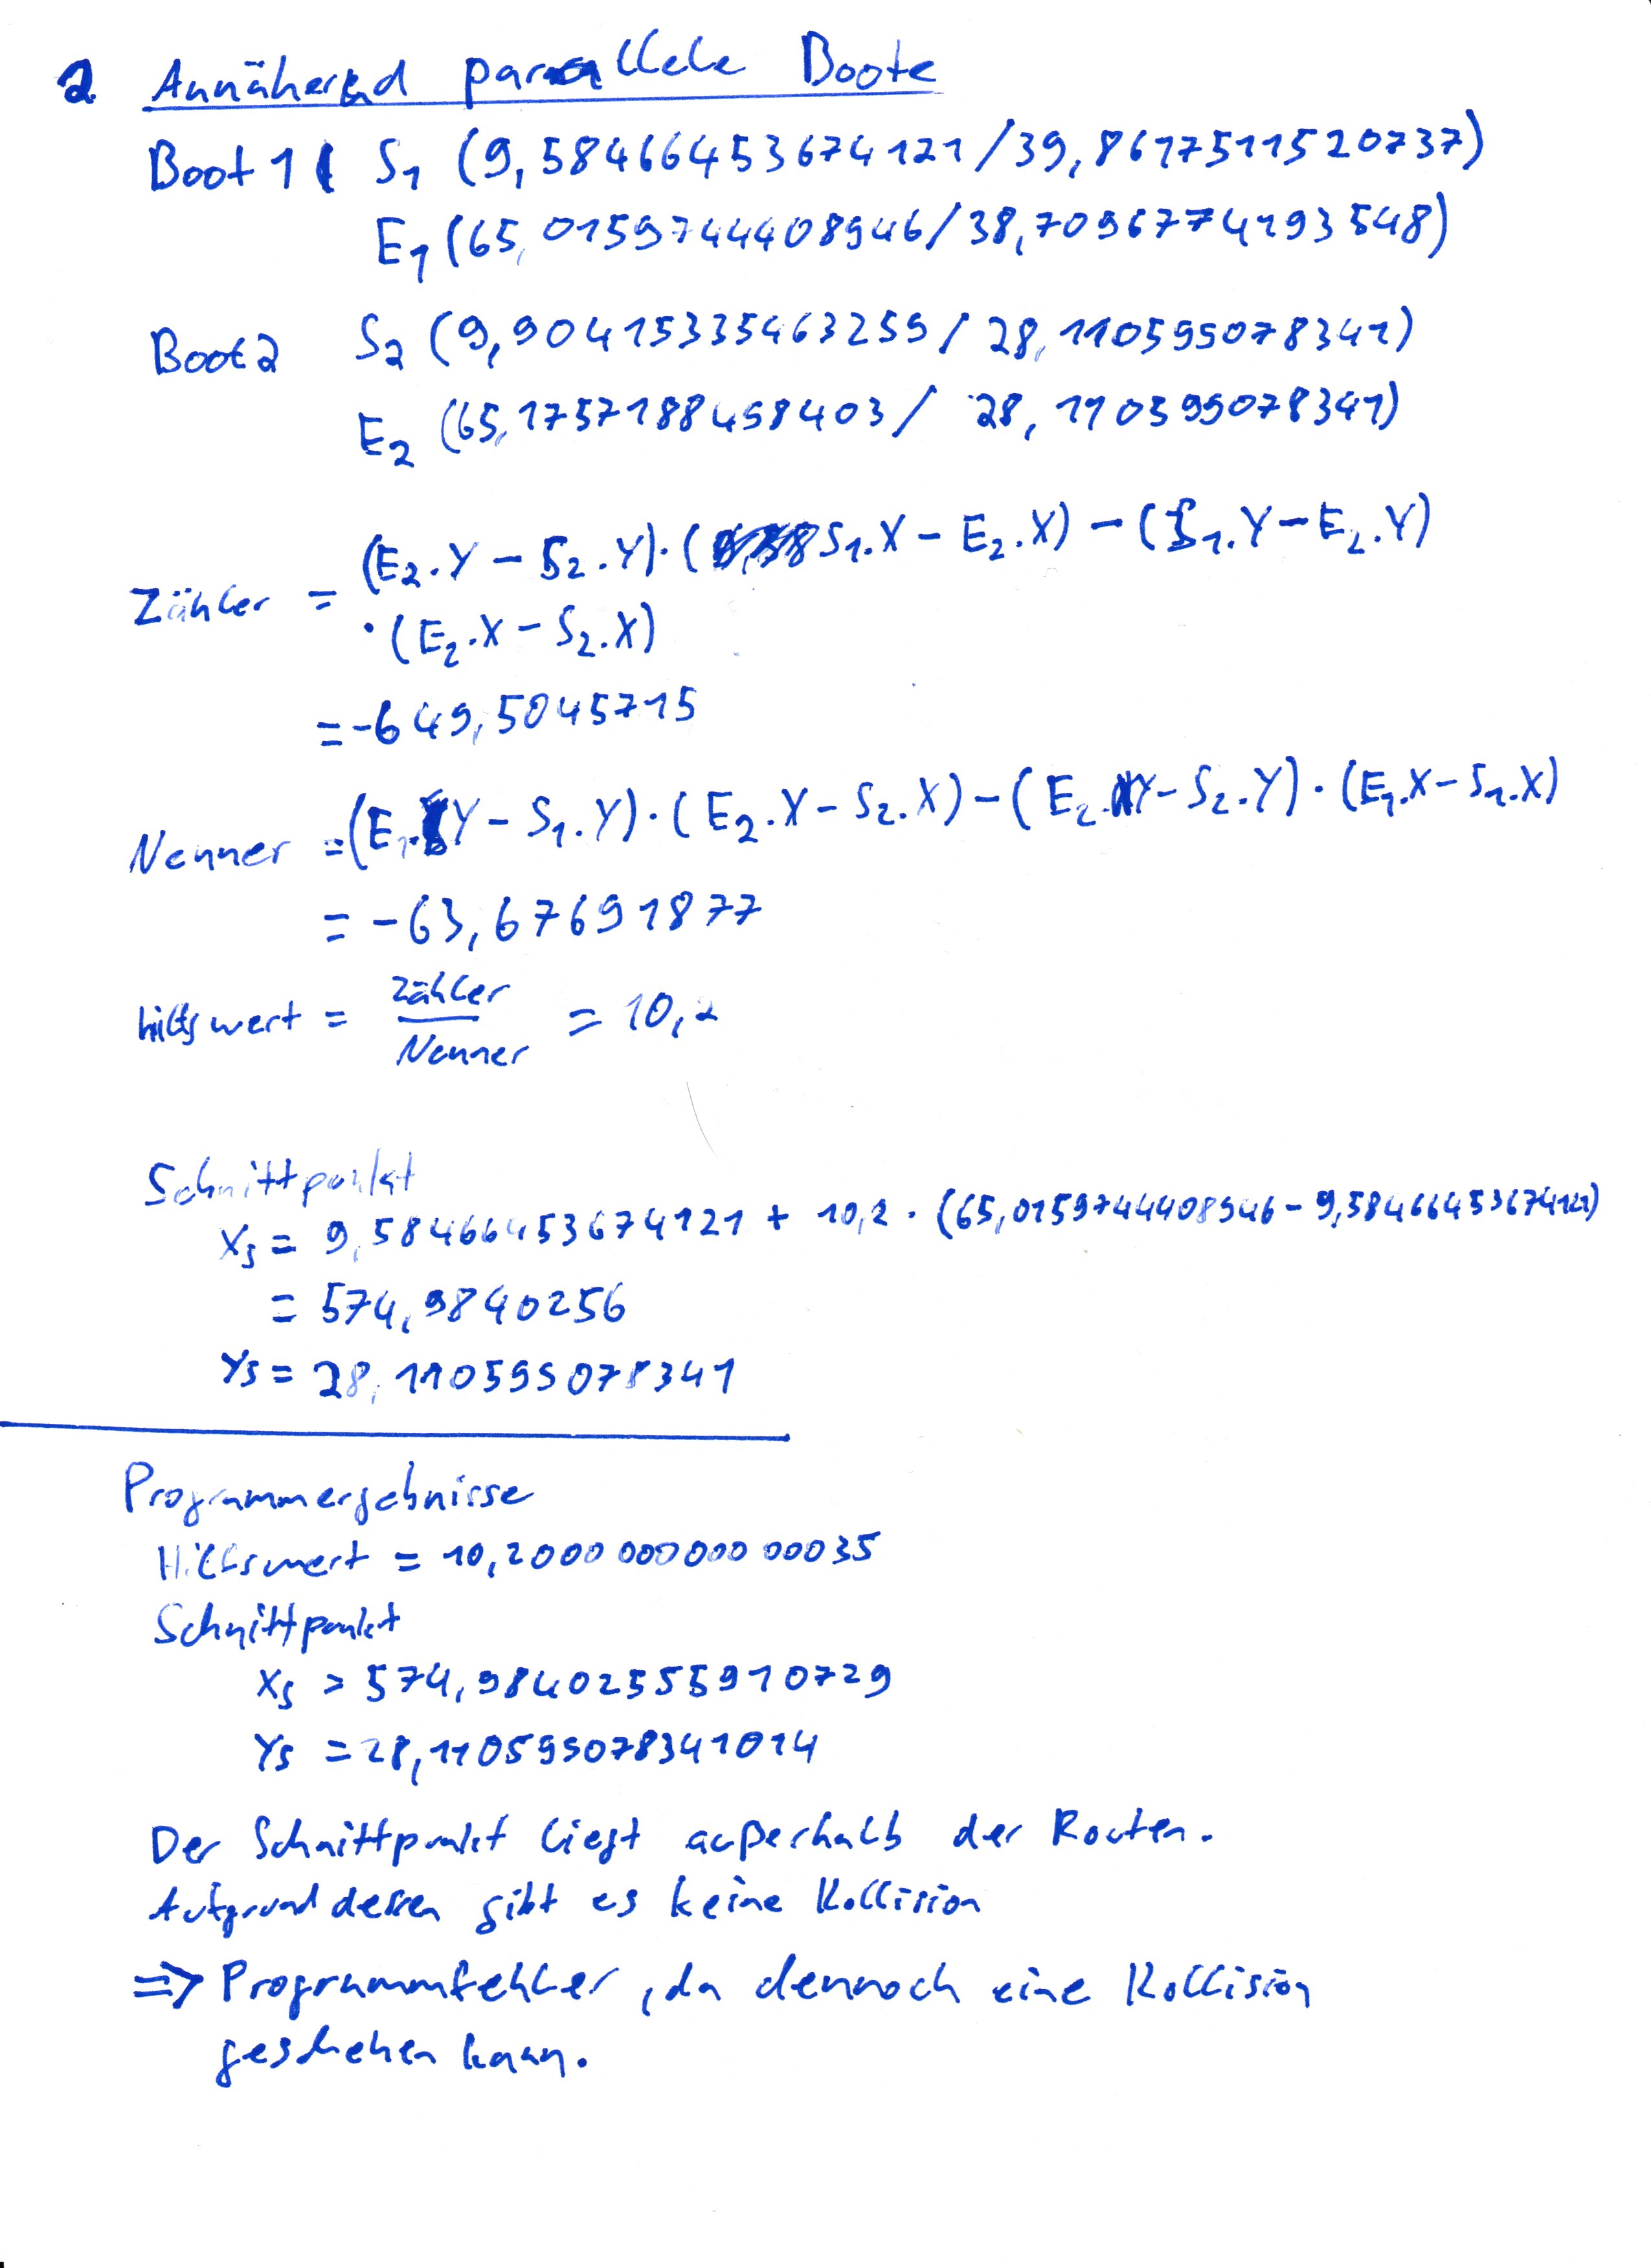 2 Annähernd parallele Boote
Boot 1 S1 (9,58466453674121/39,8617511520737)
E1 (65,0159744408946/38,7096774193548)
Boot 2 S2 (9,90415335463259/28,110599078341)
E2 (65,1757188498403/28,110599078341)
Zähler = (E2.Y - S2.Y)·(S1.X - E2.X) - (S1.Y - E2.Y)
·(E2.X - S2.X)
= -649,5045715
Nenner = (E1.Y - S1.Y)·(E2.X - S2.X) - (E2.Y - S2.Y)·(E1.X - S1.X)
= -63,67691877
hilfswert = Zähler / Nenner = 10,2
Schnittpunkt
Xs = 9,58466453674121 + 10,2 · (65,0159744408946 - 9,58466453674121)
= 574,9840256
Ys = 28,110599078341
Programmergebnisse
Hilfswert = 10,2000000000000035
Schnittpunkt
Xs = 574,98402555910729
Ys = 28,110599078341014
Der Schnittpunkt liegt außerhalb der Routen.
Aufgrund dessen gibt es keine Kollision
=> Programmfehler, da dennoch eine Kollision
geschehen kann.